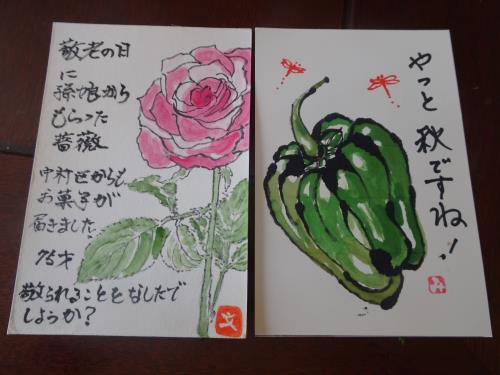 敬老の日
に
孫娘から
もらった
薔薇
中村区からも
お菓子が
届きました
75才
敬られることをなしたで
しょうか?
文
やっと秋ですね!